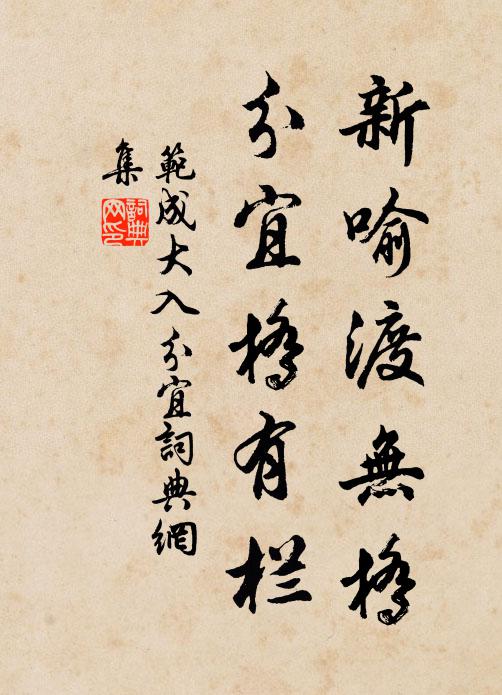 新喻渡無橋
分宜橋有栏
範成大入分宜詞典網
集
詞典網印